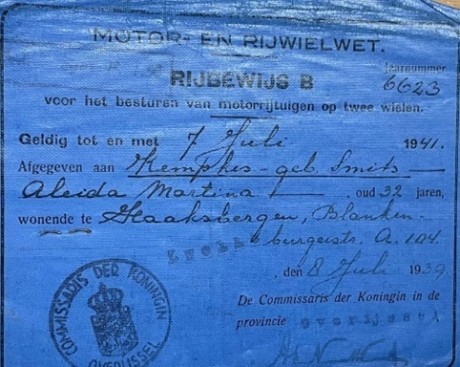 MOTOR- EN RIJWIELWET.
RIJBEWIJS B
Jaarnummer
6623
voor het besturen van motorrijtuigen op twee wielen.
Geldig tot en met 7 Juli 1941.
Afgegeven aan Kemphes - geb. Smits -
Aleida Martina - oud 32 jaren,
wonende te Haaksbergen, Blanken-
burgerstr. A. 104.
, den 8 Juli 1939
De Commissaris der Koningin in de
provincie Overijssel,
COMMISSARIS DER KONINGIN
OVERIJSSEL